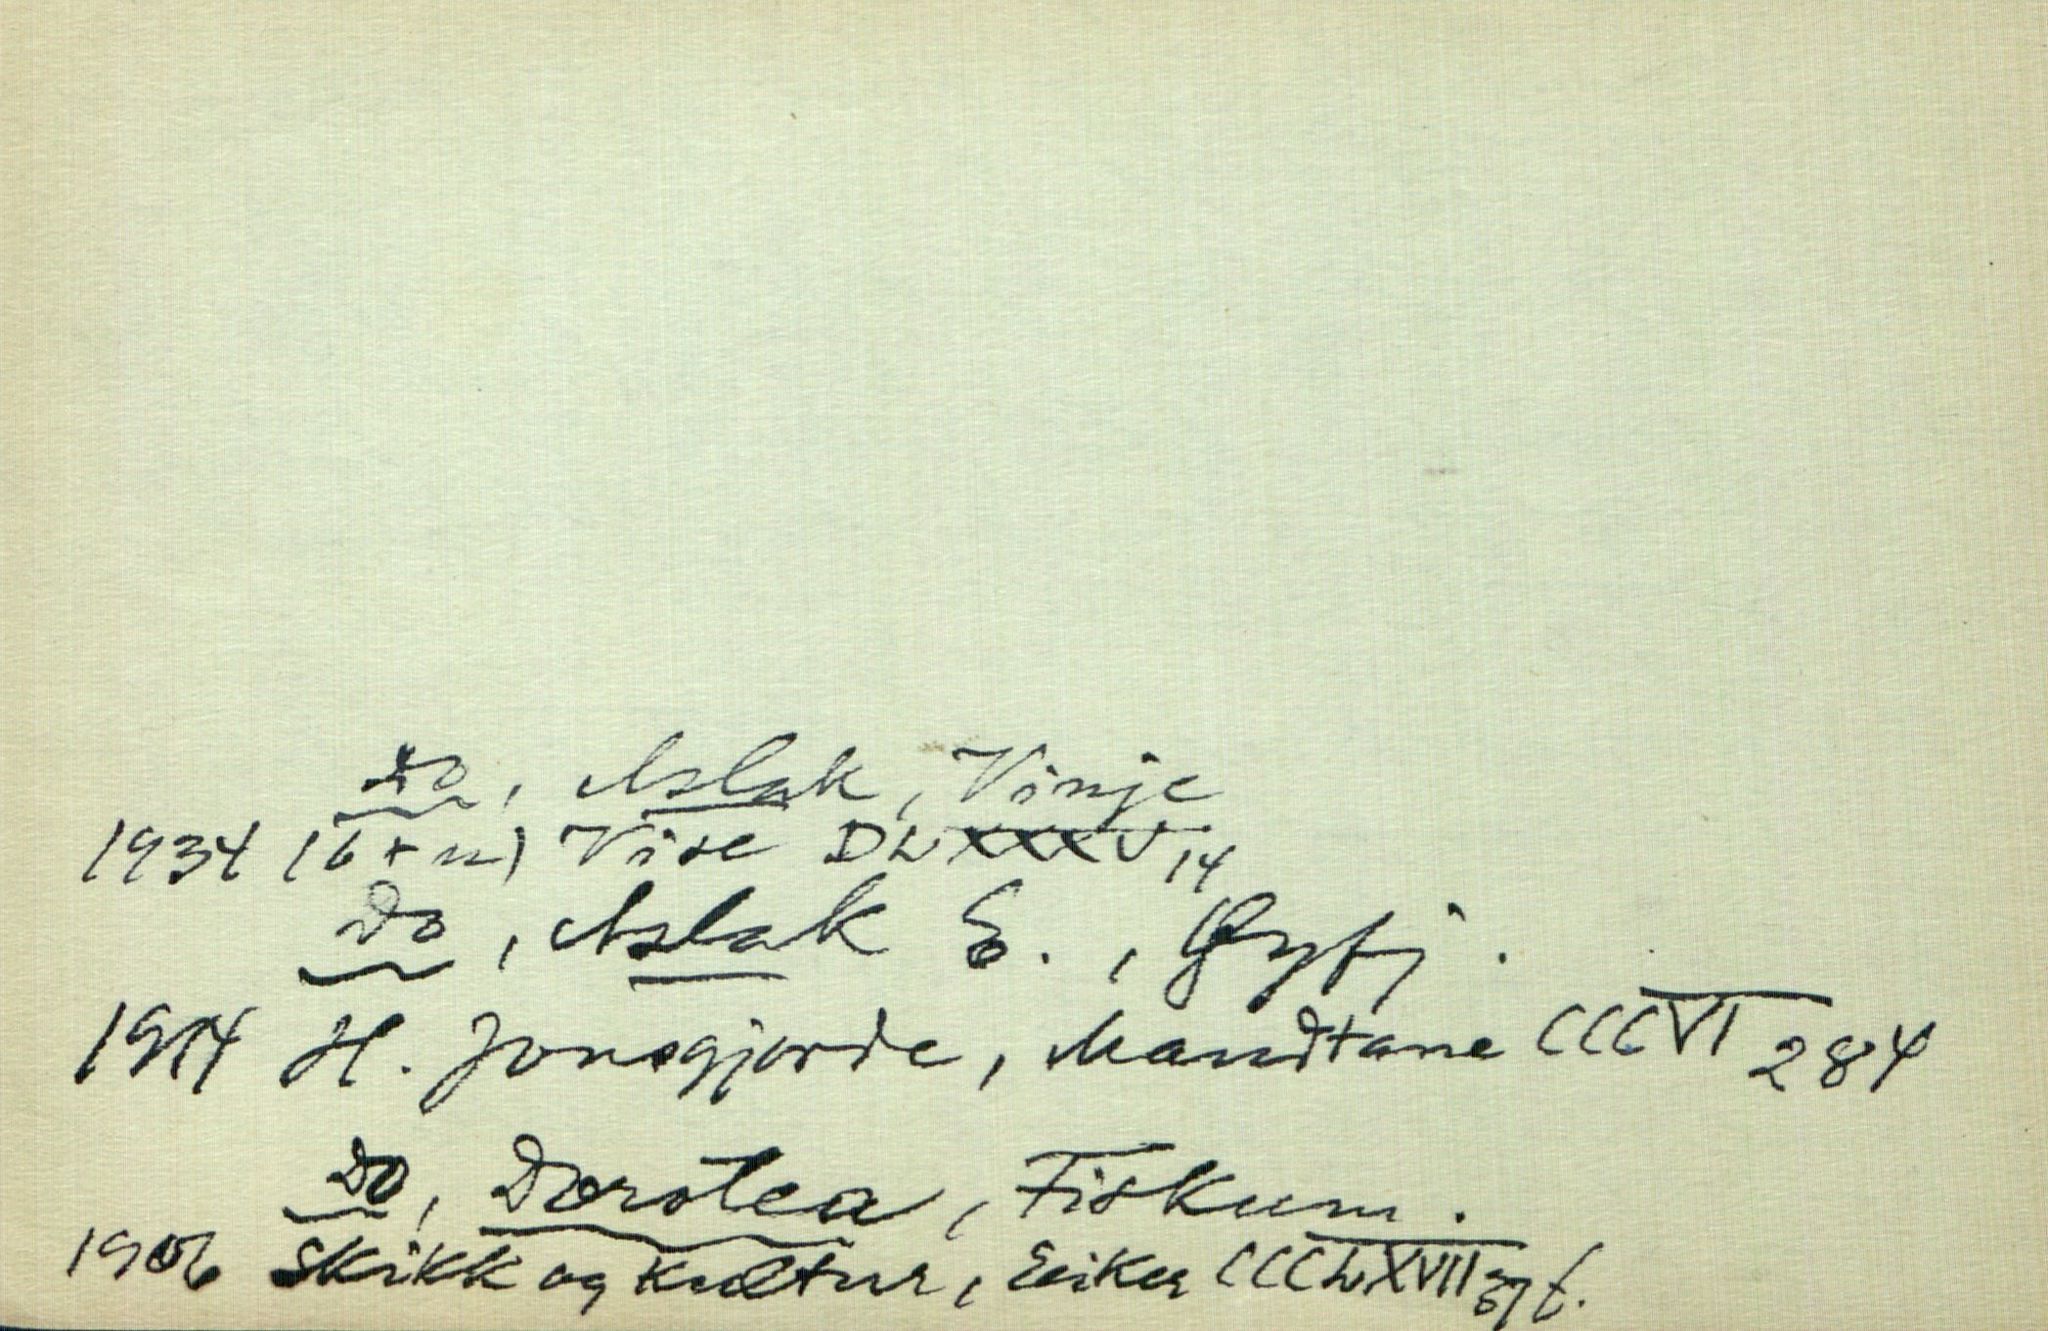 Do, Aslak, Vinje
1934 (6 + n) Vise DLXXXV 14
Do, Aslak E., Grytj.
1914 H. Jonsgjorde, Mandtane CCCVI 284
Do, Dorotea, Fiskum.
1906 Skikk og Kultur, Eiker CCCLXVII 37 f.